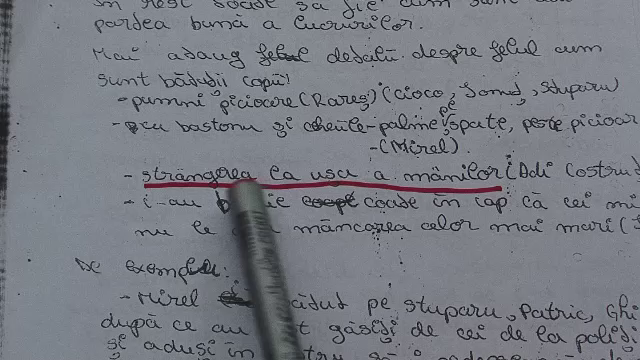 în rest
partea bună a lucrurilor.
Mai adaug detalii despre felul cum
sunt bătuții copii!
- pumni picioare (Rareș) (cioco, Ionuț, Stuparu)
- cu bastonu și cheile - palme pe spate, peste picioar
- (Mirel).
- strângerea la ușă a mânilor (Adi Costrud
- i-au coade în cap că cei mi
nu le mâncarea celor mai mari
De exemplu:
- Mirel pe Stuparu, Patric, Ghi
după ce au găsiți de cei de la poliți
și aduși în